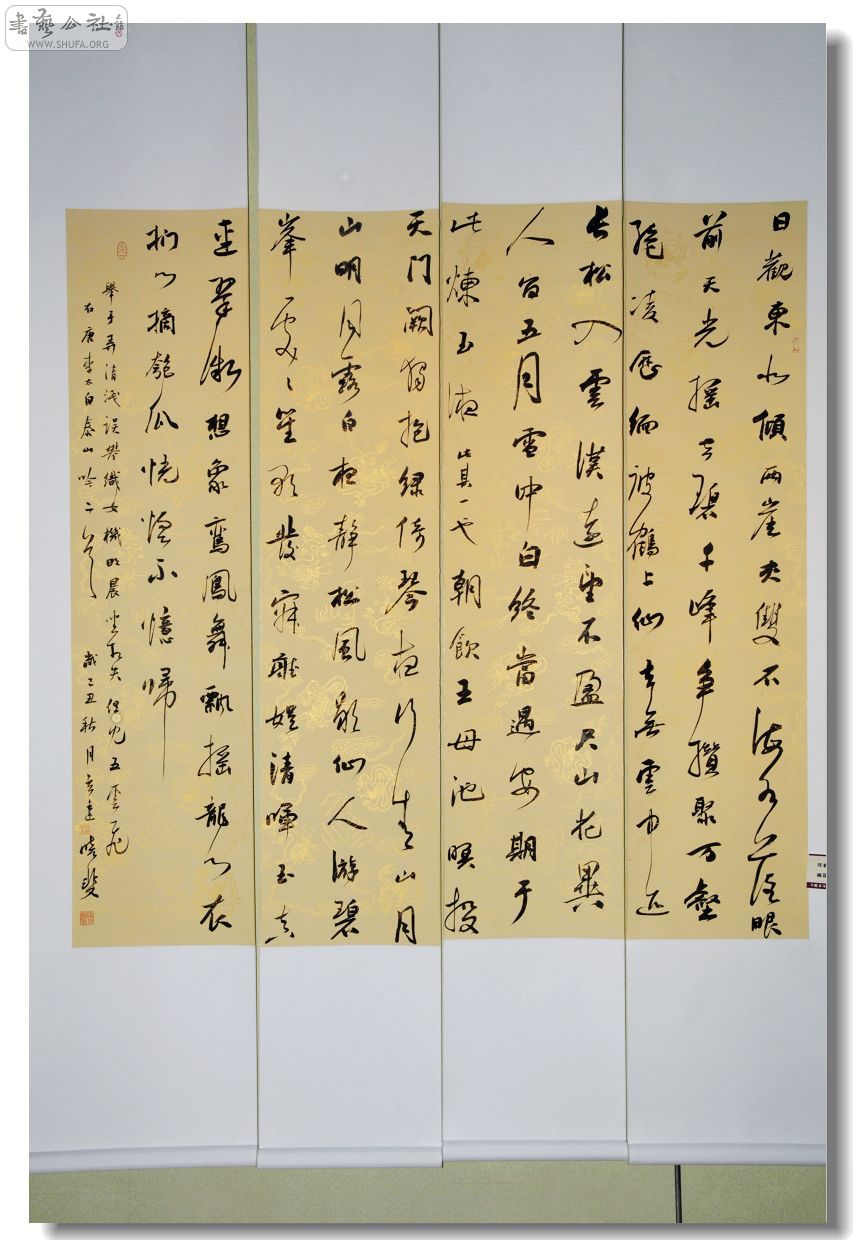 書藝公社
WWW.SHUFA.ORG
日觀東北傾兩崖夾雙石海水落眼
前天光摇空碧千峰争攢聚万壑
絕凌歷緬彼鶴上仙去無雲中迹
長松入雲漢遠望不盈尺山花異
人間五月雪中白終當遇安期于
此煉玉液此其一也朝飲王母池暝投
天門闕獨抱緑綺琴夜行青山月
山明月露白夜静松風歇仙人游碧
峯處々笙歌發寂聽娱清暉玉真
連翠微想象鸞鳳舞飄摇龍虎衣
捫天摘匏瓜恍惚不憶歸
舉手弄清淺誤攀織女機明晨坐相失但見五雲飛
右唐李太白泰山吟二首 歲己丑秋月